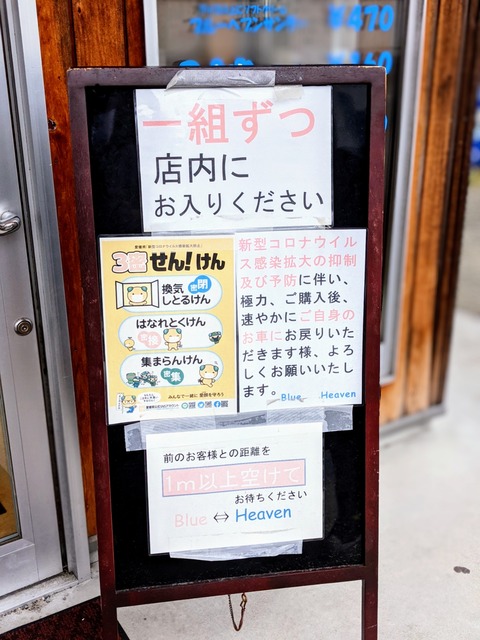 ¥470
一組ずつ
店内に
お入りください
3密せん!けん
換気
しとるけん
密閉
はなれとくけん
密接
集まらんけん
密集
みんなで一緒に 愛顔を守ろう
新型コロナウイル
ス感染拡大の抑制
及び予防に伴い、
極力、ご購入後、
速やかにご自身の
お車にお戻りいた
だきます様、よろ
しくお願いいたし
ます。
Blue Heaven
前のお客様との距離を
1m以上空けて
お待ちください
Blue ⇔ Heaven